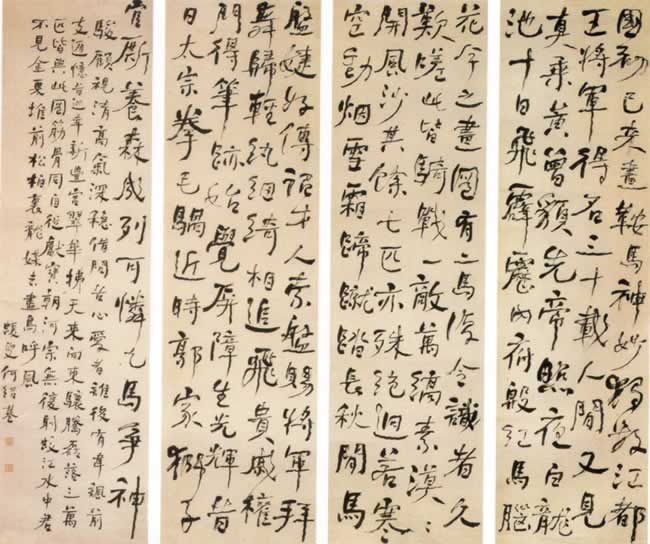 國初已來畫鞍馬神妙獨數江都
王將軍得名三十載人間又見
真乘黃曾貌先帝照夜白龍
池十日飛霹靂內府殷紅馬腦
盤婕妤傳詔才人索盤賜將軍拜
舞歸輕紈細綺相追飛貴戚權
門得筆跡始覺屏障生光輝昔
日太宗拳毛騧近時郭家獅子
花今之畫圖有二馬復令識者久
歎嗟此皆騎戰一敵萬縞素漠〻
開風沙其餘七匹亦殊絕迥若寒
空動烟雪霜蹄蹴踏長秋間馬
官廝養森成列可憐九馬爭神
駿顧視清高氣深穩借問苦心愛者誰後有韋諷前
支遁憶昔巡幸新豐宮翠華拂天來向東驤騰磊落三萬
匹皆與此圖筋骨同自從獻寶朝河宗無復射蛟江水中君
不見金粟堆前松柏裏龍媒去盡鳥呼風
蝯叟何紹基